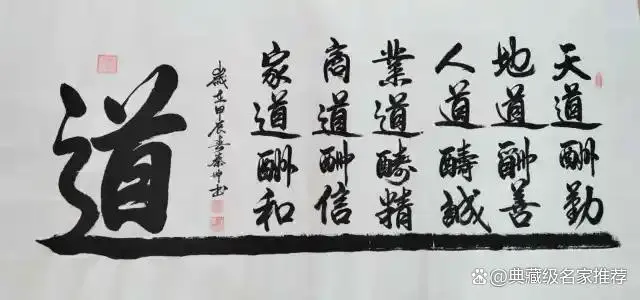 天道酬勤
地道酬善
人道醻誠
業道醻精
商道酬信
家道酬和
歲在甲辰春
道
典藏级名家推荐